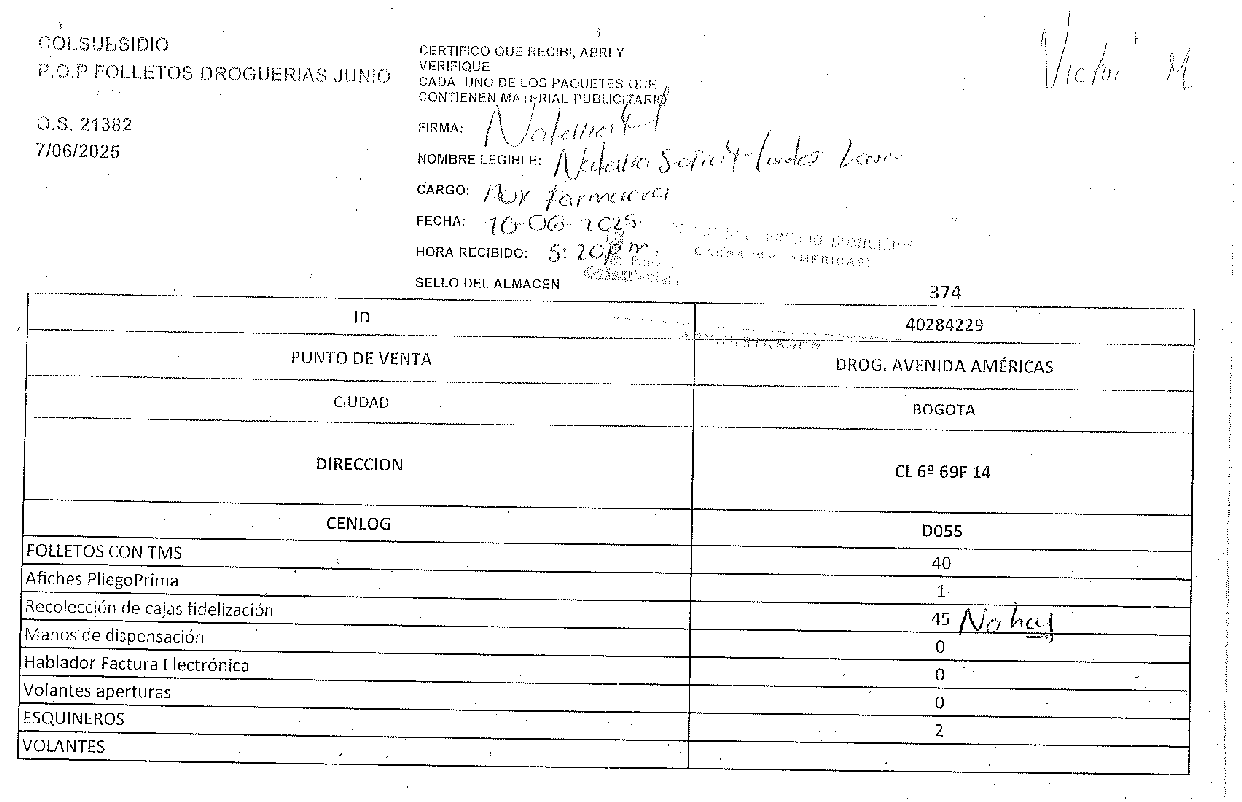 COLSUBSIDIO
P.O.P FOLLETOS DROGUERIAS JUNIO
O.S. 21382
7/06/2025
CERTIFICO QUE RECIBI, ABRI Y
VERIFIQUE
CADA UNO DE LOS PAQUETES QUE
CONTIENEN MATERIAL PUBLICITARIO
FIRMA:
NOMBRE LEGIBLE:
CARGO: Aux farmacia
FECHA: 10-06-2025
HORA RECIBIDO: 5:20pm.
SELLO DEL ALMACEN
Victor M
374
ID 40284229
PUNTO DE VENTA DROG. AVENIDA AMÉRICAS
CIUDAD BOGOTA
DIRECCION CL 6ª 69F 14
CENLOG D055
FOLLETOS CON TMS 40
Afiches PliegoPrima 1
Recolección de cajas fidelización 45 No hay
Manos de dispensación 0
Hablador Factura Electrónica 0
Volantes aperturas 0
ESQUINEROS 2
VOLANTES